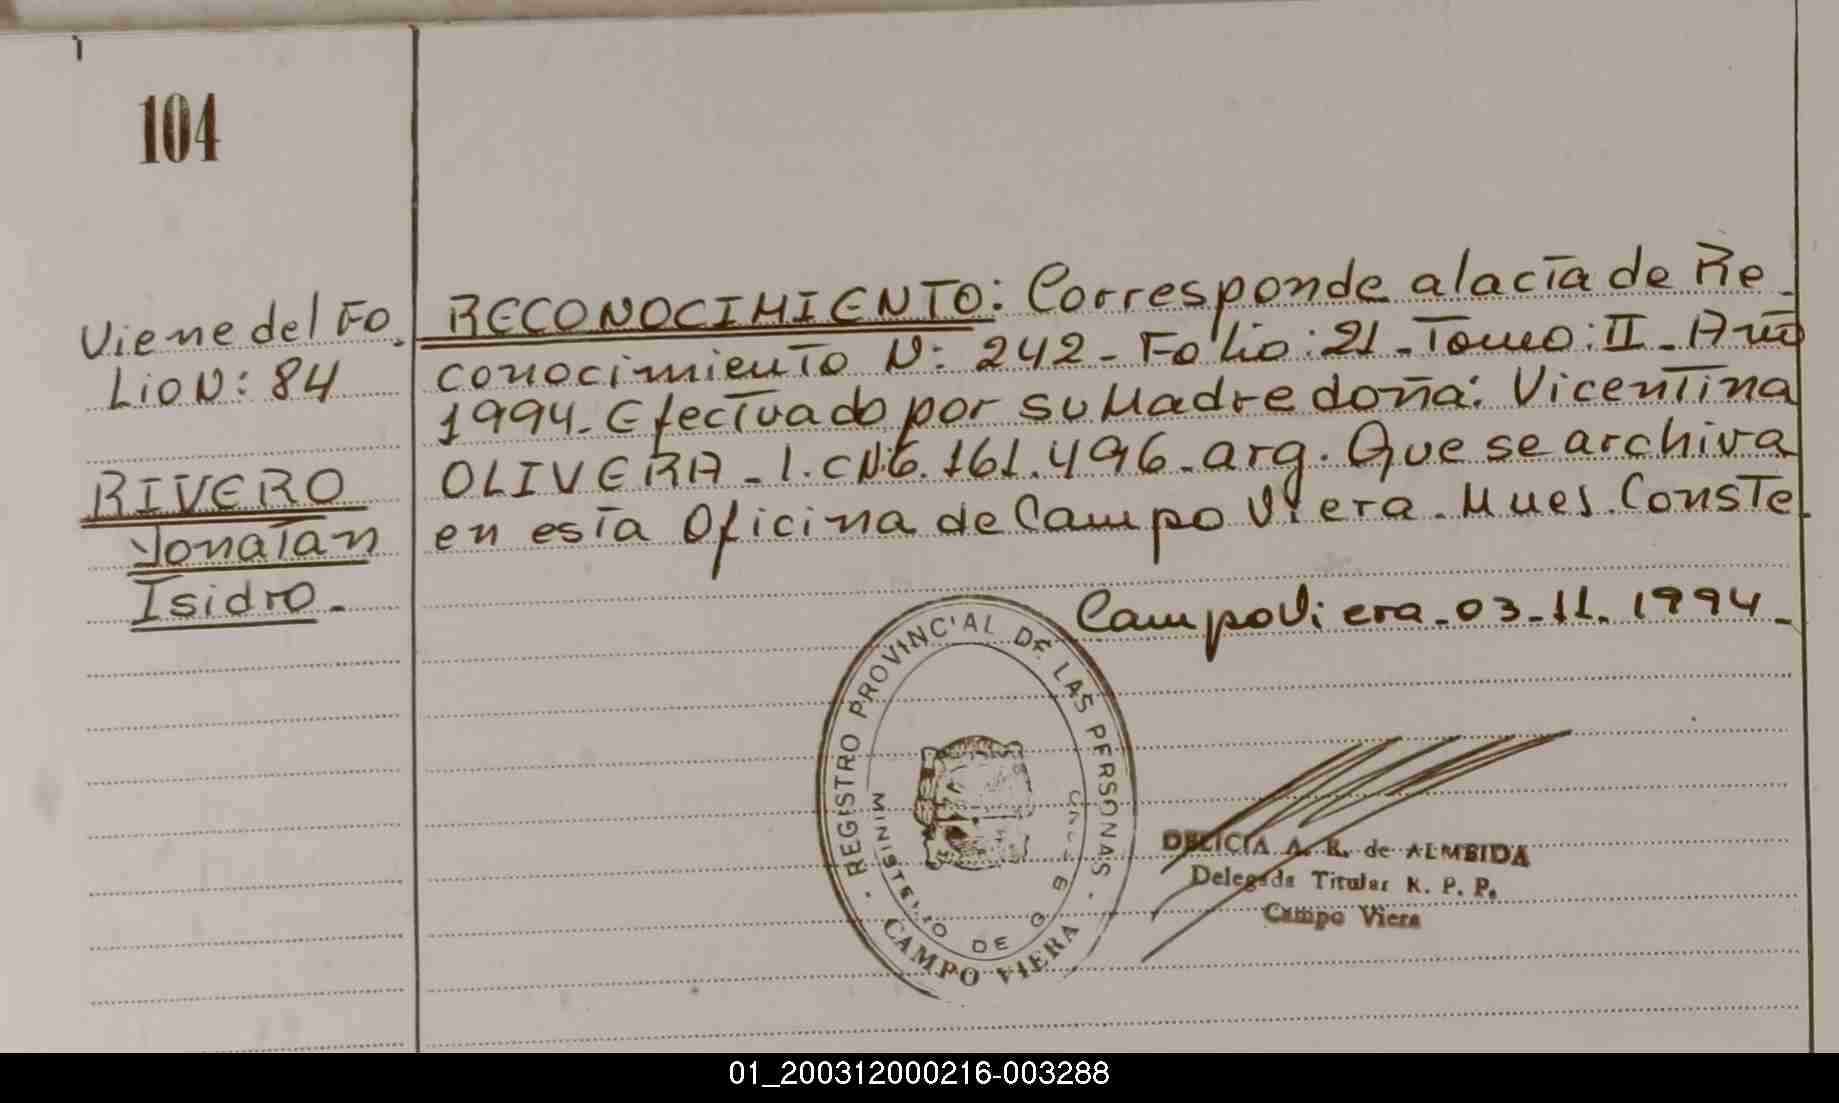 104
Viene del Fo_
Lio N: 84
RIVERO
Yonatan
Isidro.-
RECONOCIMIENTO: Corresponde alacta de Re_
conocimiento N: 242_ Folio: 21_Tomo: II_Año
1994_Efectuado por su Madre doña: Vicentina
OLIVERA_l.cN:6.161.496_arg. Que se archiva
en esta Oficina de Campo Viera. Mues. Conste.
Campo Viera_03_11.1994_
REGISTRO PROVINCIAL DE LAS PERSONAS
MINISTERIO DE GO
CAMPO VIERA
DELICIA A. R. de ALMEIDA
Delegada Titular R. P. P.
Campo Viera
01_200312000216-003288